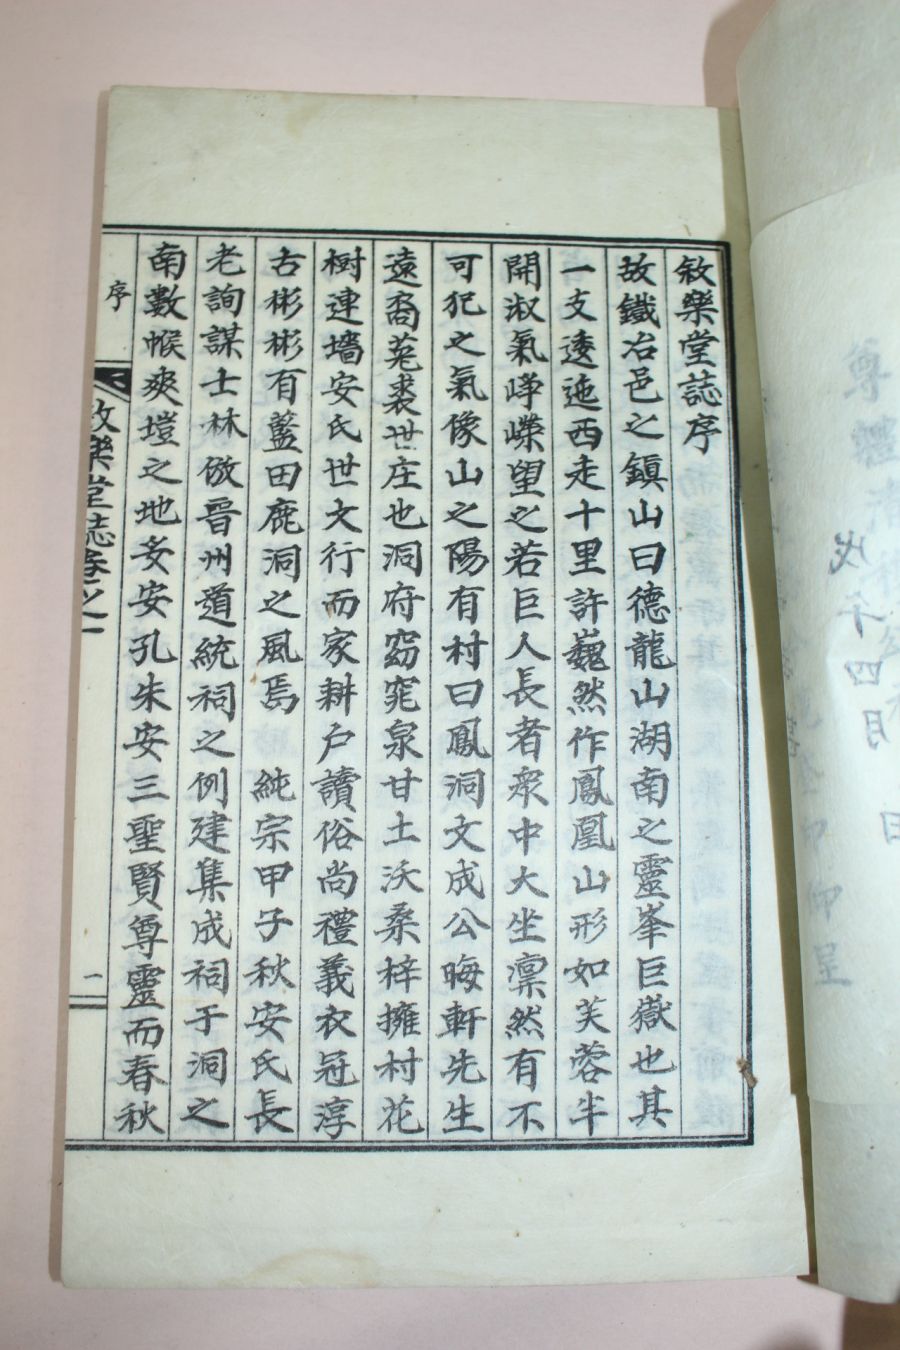 敘樂堂誌序
故鐵冶邑之鎮山曰德龍山湖南之靈峯巨嶽也其
一支逶迤西走十里許巍然作鳳凰山形如芙蓉半
開淑氣崢嶸望之若巨人長者衆中大坐凛然有不
可犯之氣像山之陽有村曰鳳洞文成公晦軒先生
遠裔菟裘世庄也洞府窈窕泉甘土沃桑梓擁村花
樹連墻安氏世文行而家耕户讀俗尚禮義衣冠淳
古彬彬有藍田鹿洞之風焉 純宗甲子秋安氏長
老詢謀士林倣晉州道統祠之例建集成祠于洞之
南數帿爽塏之地妥安孔朱安三聖賢尊靈而春秋
序
敘樂堂誌卷之一
一
戊子四月 日